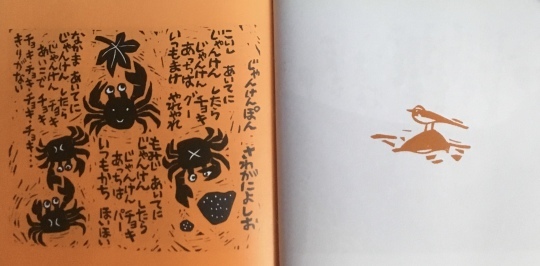 じゃんけんぽん さわがによしお
こいし あいてに
じゃんけん したら
じゃんけん チョキ
あっちは グー
いつもまけ やれやれ
もみじ あいてに
じゃんけん したら
じゃんけん チョキ
あっちは パー
いつもかち ほいほい
なかま あいてに
じゃんけん したら
じゃんけん チョキ
あいこで チョキ
チョキ チョキ チョキ チョキ
きりがない